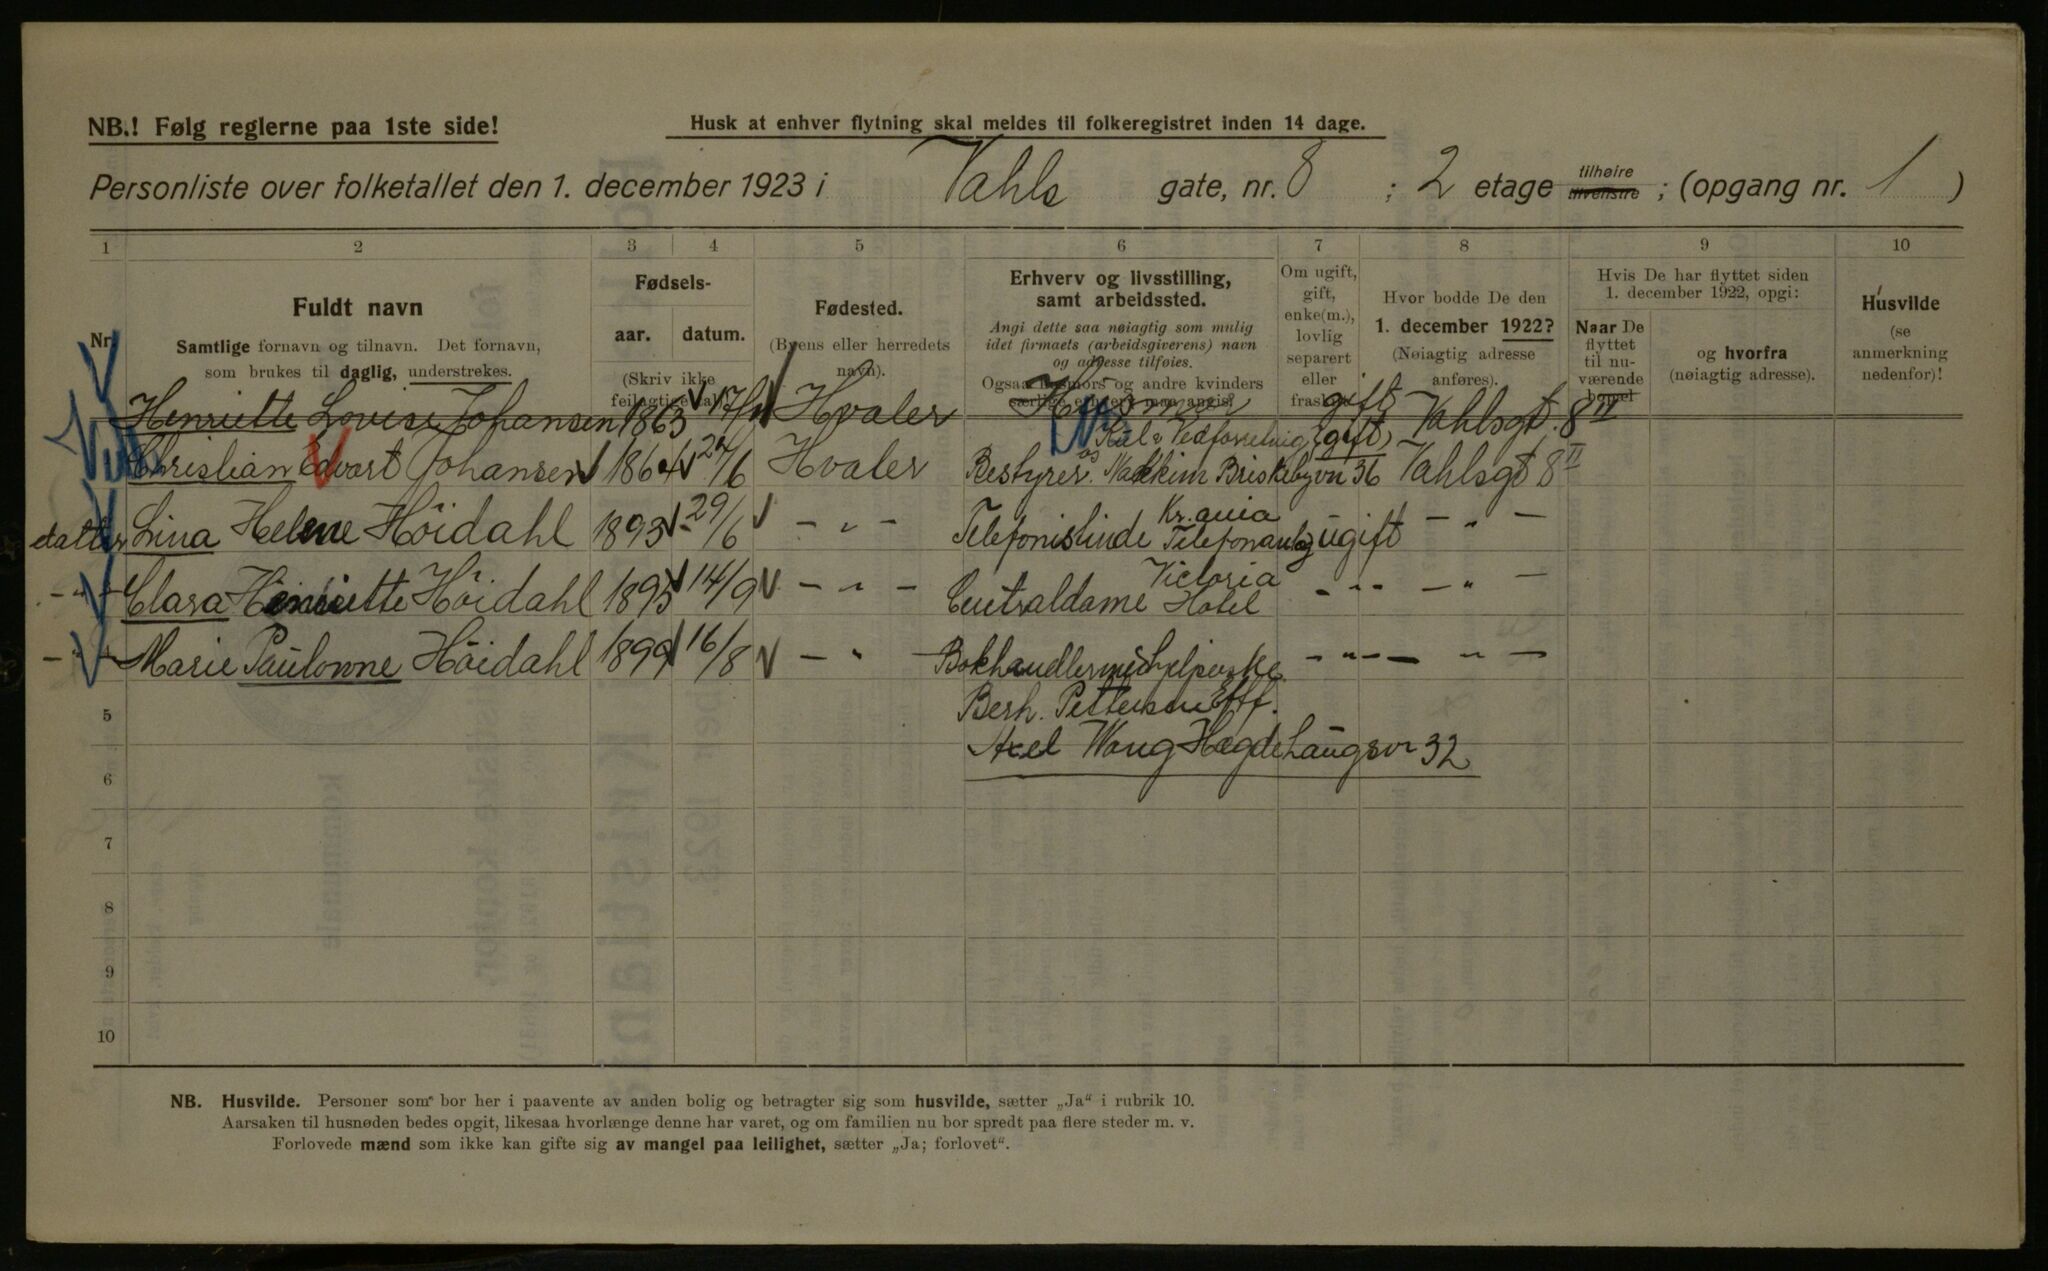 NB.! Følg reglerne paa 1ste side!
Husk at enhver flytning skal meldes til folkeregistret inden 14 dage.
Personliste over folketallet den 1. december 1923 i Vahls gate, nr. 8 ; 2 etage tilhøire tilvenstre ; (opgang nr. 1 )
1 2 3 4 5 6 7 8 9 10
Nr.
Fuldt navn
Samtlige fornavn og tilnavn. Det fornavn,
som brukes til daglig, understrekes.
Fødsels-
aar. datum.
(Skriv ikke
Fødested.
(Byens eller herredets
navn).
Erhverv og livsstilling,
samt arbeidssted.
Angi dette saa nøiagtig som mulig
idet firmaets (arbeidsgiverens) navn
og adresse tilføies.
Ogsaa husmors og andre kvinders
særlige erhverv maa angis.
Om ugift,
gift,
enke(m.),
lovlig
separert
eller
fraskilt
Hvor bodde De den
1. december 1922?
(Nøiagtig adresse
anføres).
Hvis De har flyttet siden
1. december 1922, opgi:
Naar De
flyttet
til nu-
værende
bopel
og hvorfra
(nøiagtig adresse).
Husvilde
(se
anmerkning
nedenfor)!
Henriette Lovise Johansen 1863 17/11 Hvaler Husmor gift Vahlsgt. 8 II
Kul & Vedforretning
Christian Edvart Johansen 1864 24/6 Hvaler Bestyrer Briskebyvn 36 gift Vahlsgt 8 II
Kr.ania
datter Lina Helene Höidahl 1893 29/6 - " - Telefonistinde Telefonanlæg ugift - " -
Victoria
- " - Clara Henriette Höidahl 1895 14/9 - " - Centraldame Hotel - " - - " -
- " - Marie Paulonne Höidahl 1899 16/8 - " - Bokhandlermedhjelperske - " - - " -
5 Besh. Pettersen Eftf.
Axel Wang Hegdehaugsvn 32
6
7
8
9
10
NB. Husvilde. Personer som bor her i paavente av anden bolig og betragter sig som husvilde, sætter „Ja“ i rubrik 10.
Aarsaken til husnøden bedes opgit, likesaa hvorlænge denne har varet, og om familien nu bor spredt paa flere steder m. v.
Forlovede mænd som ikke kan gifte sig av mangel paa leilighet, sætter „Ja; forlovet“.